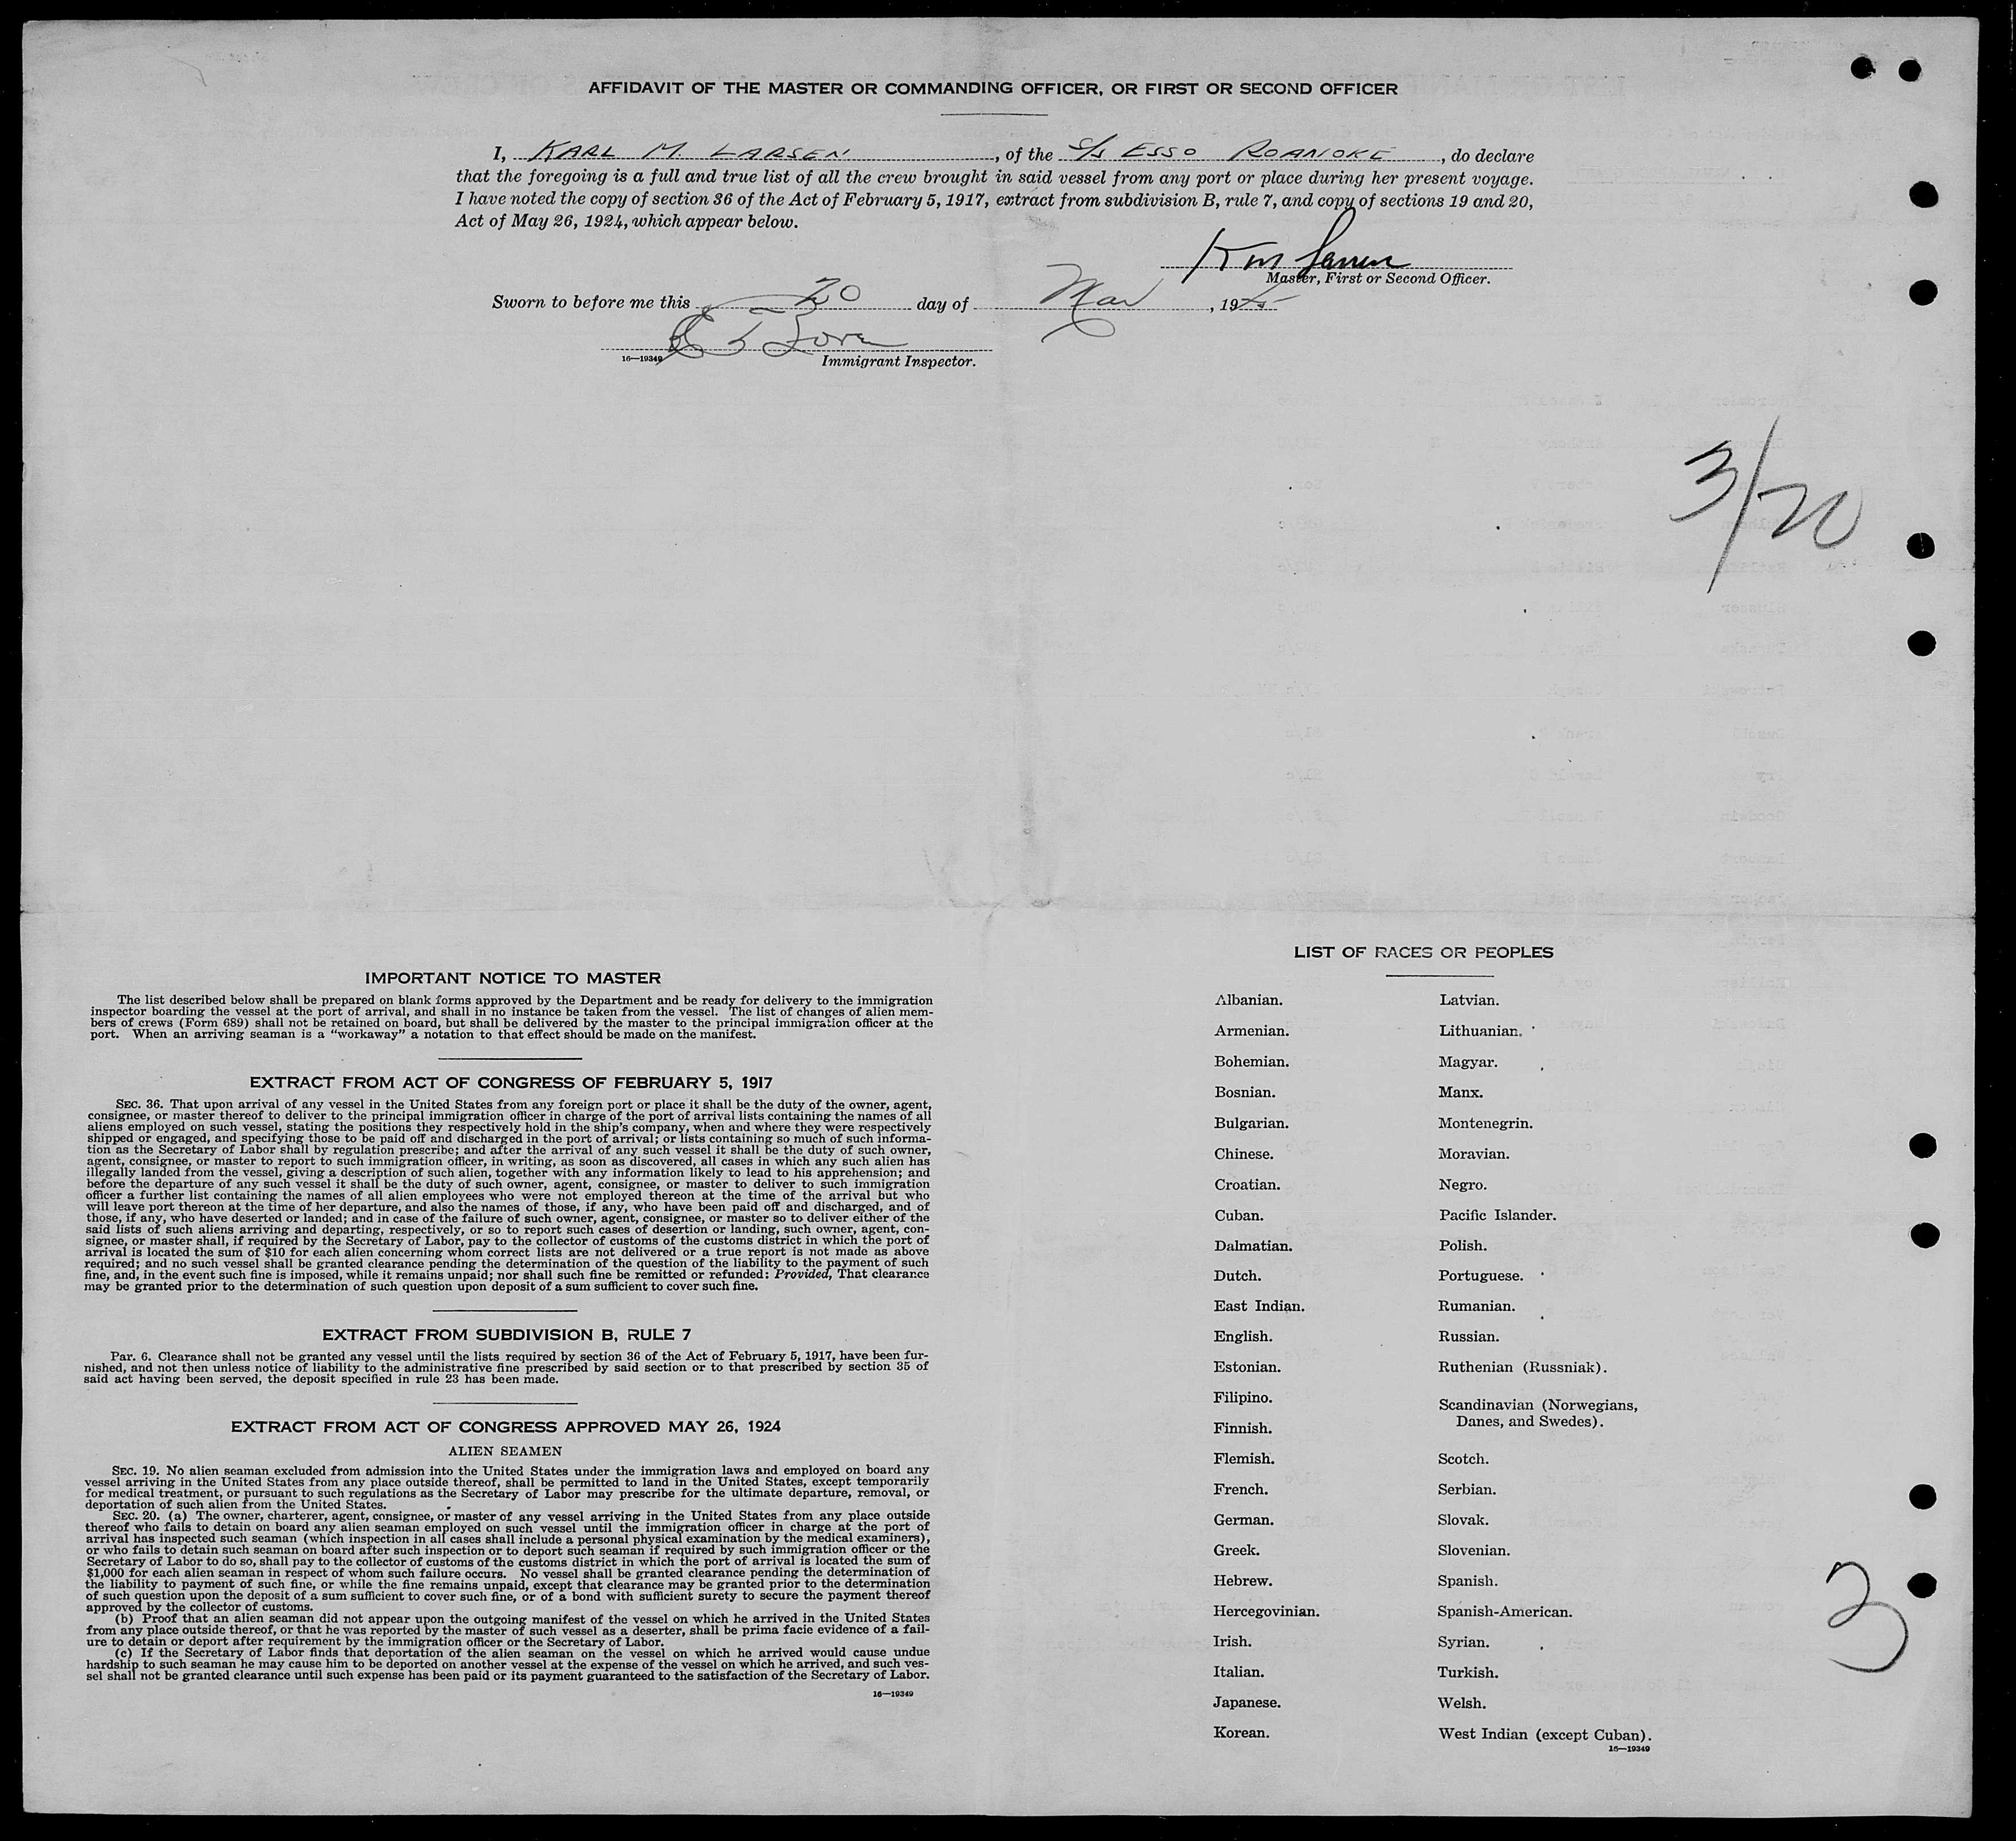 AFFIDAVIT OF THE MASTER OR COMMANDING OFFICER, OR FIRST OR SECOND OFFICER
I, KARL M. LARSEN, of the S/S ESSO ROANOKE, do declare
that the foregoing is a full and true list of all the crew brought in said vessel from any port or place during her present voyage.
I have noted the copy of section 36 of the Act of February 5, 1917, extract from subdivision B, rule 7, and copy of sections 19 and 20,
Act of May 26, 1924, which appear below.
K M Larsen
Master, First or Second Officer.
Sworn to before me this 20 day of Mar, 19
16—19349
Immigrant Inspector.
3/20
IMPORTANT NOTICE TO MASTER
The list described below shall be prepared on blank forms approved by the Department and be ready for delivery to the immigration
inspector boarding the vessel at the port of arrival, and shall in no instance be taken from the vessel. The list of changes of alien mem-
bers of crews (Form 689) shall not be retained on board, but shall be delivered by the master to the principal immigration officer at the
port. When an arriving seaman is a "workaway" a notation to that effect should be made on the manifest.
EXTRACT FROM ACT OF CONGRESS OF FEBRUARY 5, 1917
SEC. 36. That upon arrival of any vessel in the United States from any foreign port or place it shall be the duty of the owner, agent,
consignee, or master thereof to deliver to the principal immigration officer in charge of the port of arrival lists containing the names of all
aliens employed on such vessel, stating the positions they respectively hold in the ship's company, when and where they were respectively
shipped or engaged, and specifying those to be paid off and discharged in the port of arrival; or lists containing so much of such informa-
tion as the Secretary of Labor shall by regulation prescribe; and after the arrival of any such vessel it shall be the duty of such owner,
agent, consignee, or master to report to such immigration officer, in writing, as soon as discovered, all cases in which any such alien has
illegally landed from the vessel, giving a description of such alien, together with any information likely to lead to his apprehension; and
before the departure of any such vessel it shall be the duty of such owner, agent, consignee, or master to deliver to such immigration
officer a further list containing the names of all alien employees who were not employed thereon at the time of the arrival but who
will leave port thereon at the time of her departure, and also the names of those, if any, who have been paid off and discharged, and of
those, if any, who have deserted or landed; and in case of the failure of such owner, agent, consignee, or master so to deliver either of the
said lists of such aliens arriving and departing, respectively, or so to report such cases of desertion or landing, such owner, agent, con-
signee, or master shall, if required by the Secretary of Labor, pay to the collector of customs of the customs district in which the port of
arrival is located the sum of $10 for each alien concerning whom correct lists are not delivered or a true report is not made as above
required; and no such vessel shall be granted clearance pending the determination of the question of the liability to the payment of such
fine, and, in the event such fine is imposed, while it remains unpaid; nor shall such fine be remitted or refunded: Provided, That clearance
may be granted prior to the determination of such question upon deposit of a sum sufficient to cover such fine.
EXTRACT FROM SUBDIVISION B, RULE 7
Par. 6. Clearance shall not be granted any vessel until the lists required by section 36 of the Act of February 5, 1917, have been fur-
nished, and not then unless notice of liability to the administrative fine prescribed by said section or to that prescribed by section 35 of
said act having been served, the deposit specified in rule 23 has been made.
EXTRACT FROM ACT OF CONGRESS APPROVED MAY 26, 1924
ALIEN SEAMEN
SEC. 19. No alien seaman excluded from admission into the United States under the immigration laws and employed on board any
vessel arriving in the United States from any place outside thereof, shall be permitted to land in the United States, except temporarily
for medical treatment, or pursuant to such regulations as the Secretary of Labor may prescribe for the ultimate departure, removal, or
deportation of such alien from the United States.
SEC. 20. (a) The owner, charterer, agent, consignee, or master of any vessel arriving in the United States from any place outside
thereof who fails to detain on board any alien seaman employed on such vessel until the immigration officer in charge at the port of
arrival has inspected such seaman (which inspection in all cases shall include a personal physical examination by the medical examiners),
or who fails to detain such seaman on board after such inspection or to deport such seaman if required by such immigration officer or the
Secretary of Labor to do so, shall pay to the collector of customs of the customs district in which the port of arrival is located the sum of
$1,000 for each alien seaman in respect of whom such failure occurs. No vessel shall be granted clearance pending the determination of
the liability to payment of such fine, or while the fine remains unpaid, except that clearance may be granted prior to the determination
of such question upon the deposit of a sum sufficient to cover such fine, or of a bond with sufficient surety to secure the payment thereof
approved by the collector of customs.
(b) Proof that an alien seaman did not appear upon the outgoing manifest of the vessel on which he arrived in the United States
from any place outside thereof, or that he was reported by the master of such vessel as a deserter, shall be prima facie evidence of a fail-
ure to detain or deport after requirement by the immigration officer or the Secretary of Labor.
(c) If the Secretary of Labor finds that deportation of the alien seaman on the vessel on which he arrived would cause undue
hardship to such seaman he may cause him to be deported on another vessel at the expense of the vessel on which he arrived, and such ves-
sel shall not be granted clearance until such expense has been paid or its payment guaranteed to the satisfaction of the Secretary of Labor.
16—19349
LIST OF RACES OR PEOPLES
Albanian.
Armenian.
Bohemian.
Bosnian.
Bulgarian.
Chinese.
Croatian.
Cuban.
Dalmatian.
Dutch.
East Indian.
English.
Estonian.
Filipino.
Finnish.
Flemish.
French.
German.
Greek.
Hebrew.
Hercegovinian.
Irish.
Italian.
Japanese.
Korean.
Latvian.
Lithuanian.
Magyar.
Manx.
Montenegrin.
Moravian.
Negro.
Pacific Islander.
Polish.
Portuguese.
Rumanian.
Russian.
Ruthenian (Russniak).
Scandinavian (Norwegians,
Danes, and Swedes).
Scotch.
Serbian.
Slovak.
Slovenian.
Spanish.
Spanish-American.
Syrian.
Turkish.
Welsh.
West Indian (except Cuban).
16—19349
3